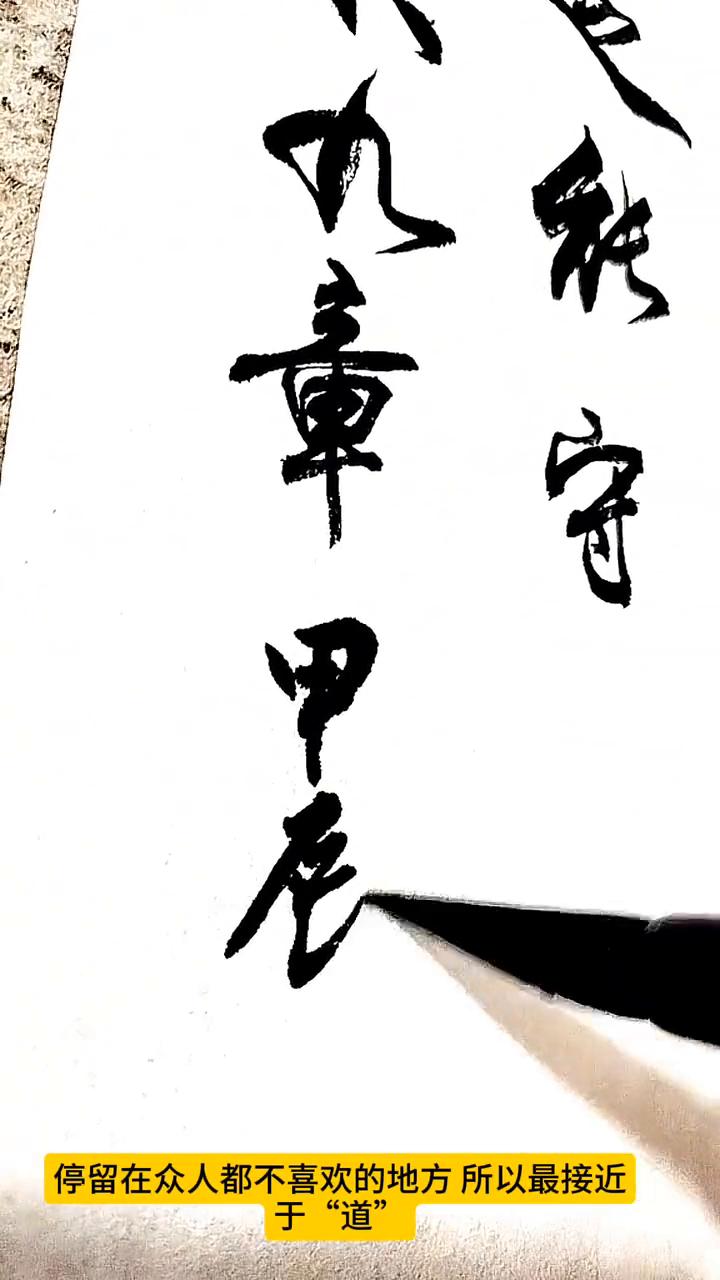 能守
九章甲辰
停留在众人都不喜欢的地方 所以最接近
于“道”